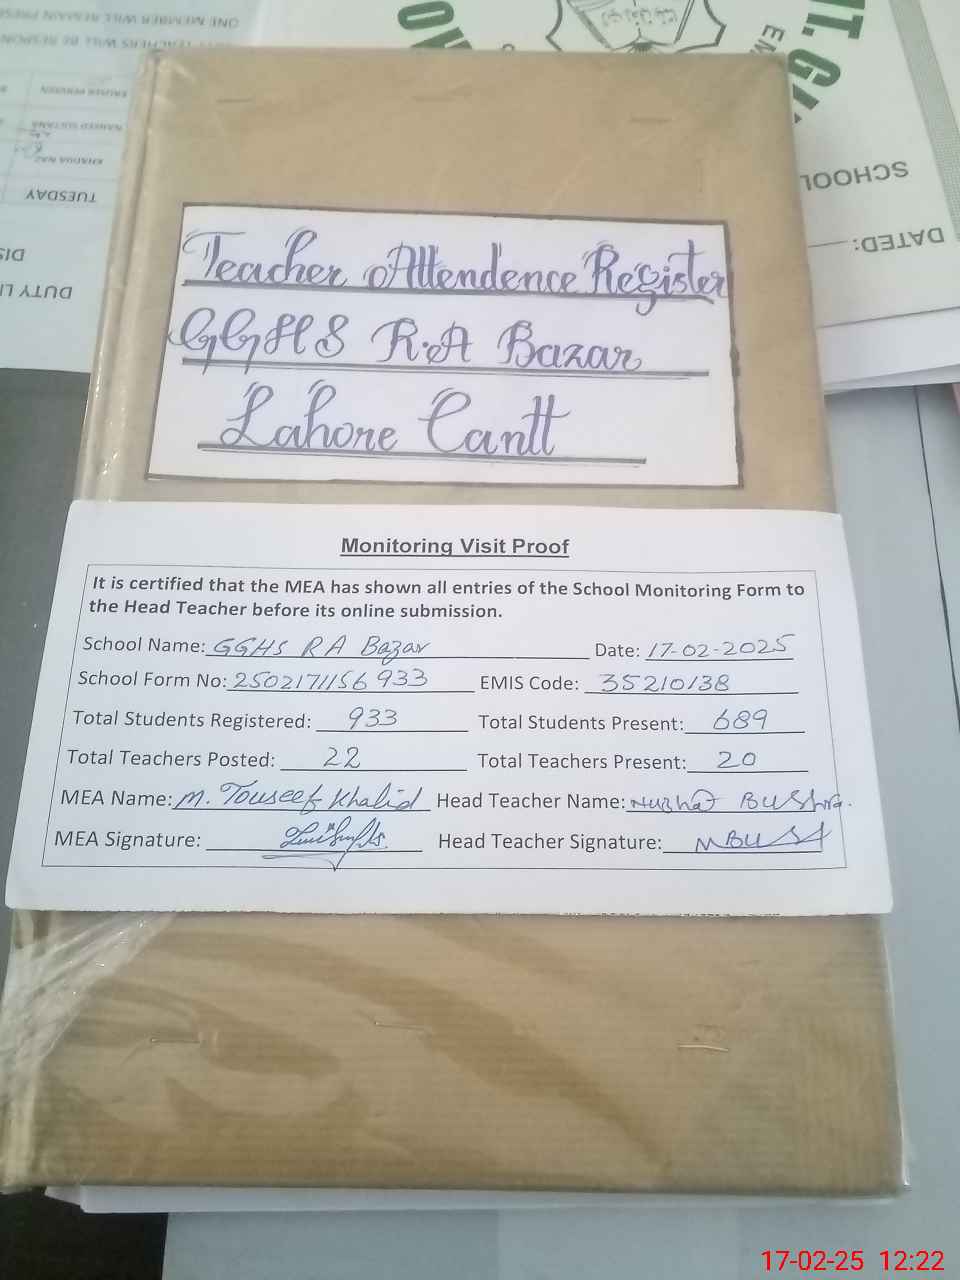 ONE MEMBER WILL REMAIN
TEACHERS WILL BE
NAHEED SULTANA
KHADIJA NAZ
TUESDAY
DUTY
SCHOOL
DATED:
Teacher Attendence Register
GGHS R.A Bazar
Lahore Cantt
Monitoring Visit Proof
It is certified that the MEA has shown all entries of the School Monitoring Form to
the Head Teacher before its online submission.
School Name: GGHS RA Bazar Date: 17-02-2025
School Form No: 2502171156933 EMIS Code: 35210138
Total Students Registered: 933 Total Students Present: 689
Total Teachers Posted: 22 Total Teachers Present: 20
MEA Name: M. Touseef Khalid Head Teacher Name: Nuzhat Bushra.
MEA Signature: Head Teacher Signature:
17-02-25 12:22